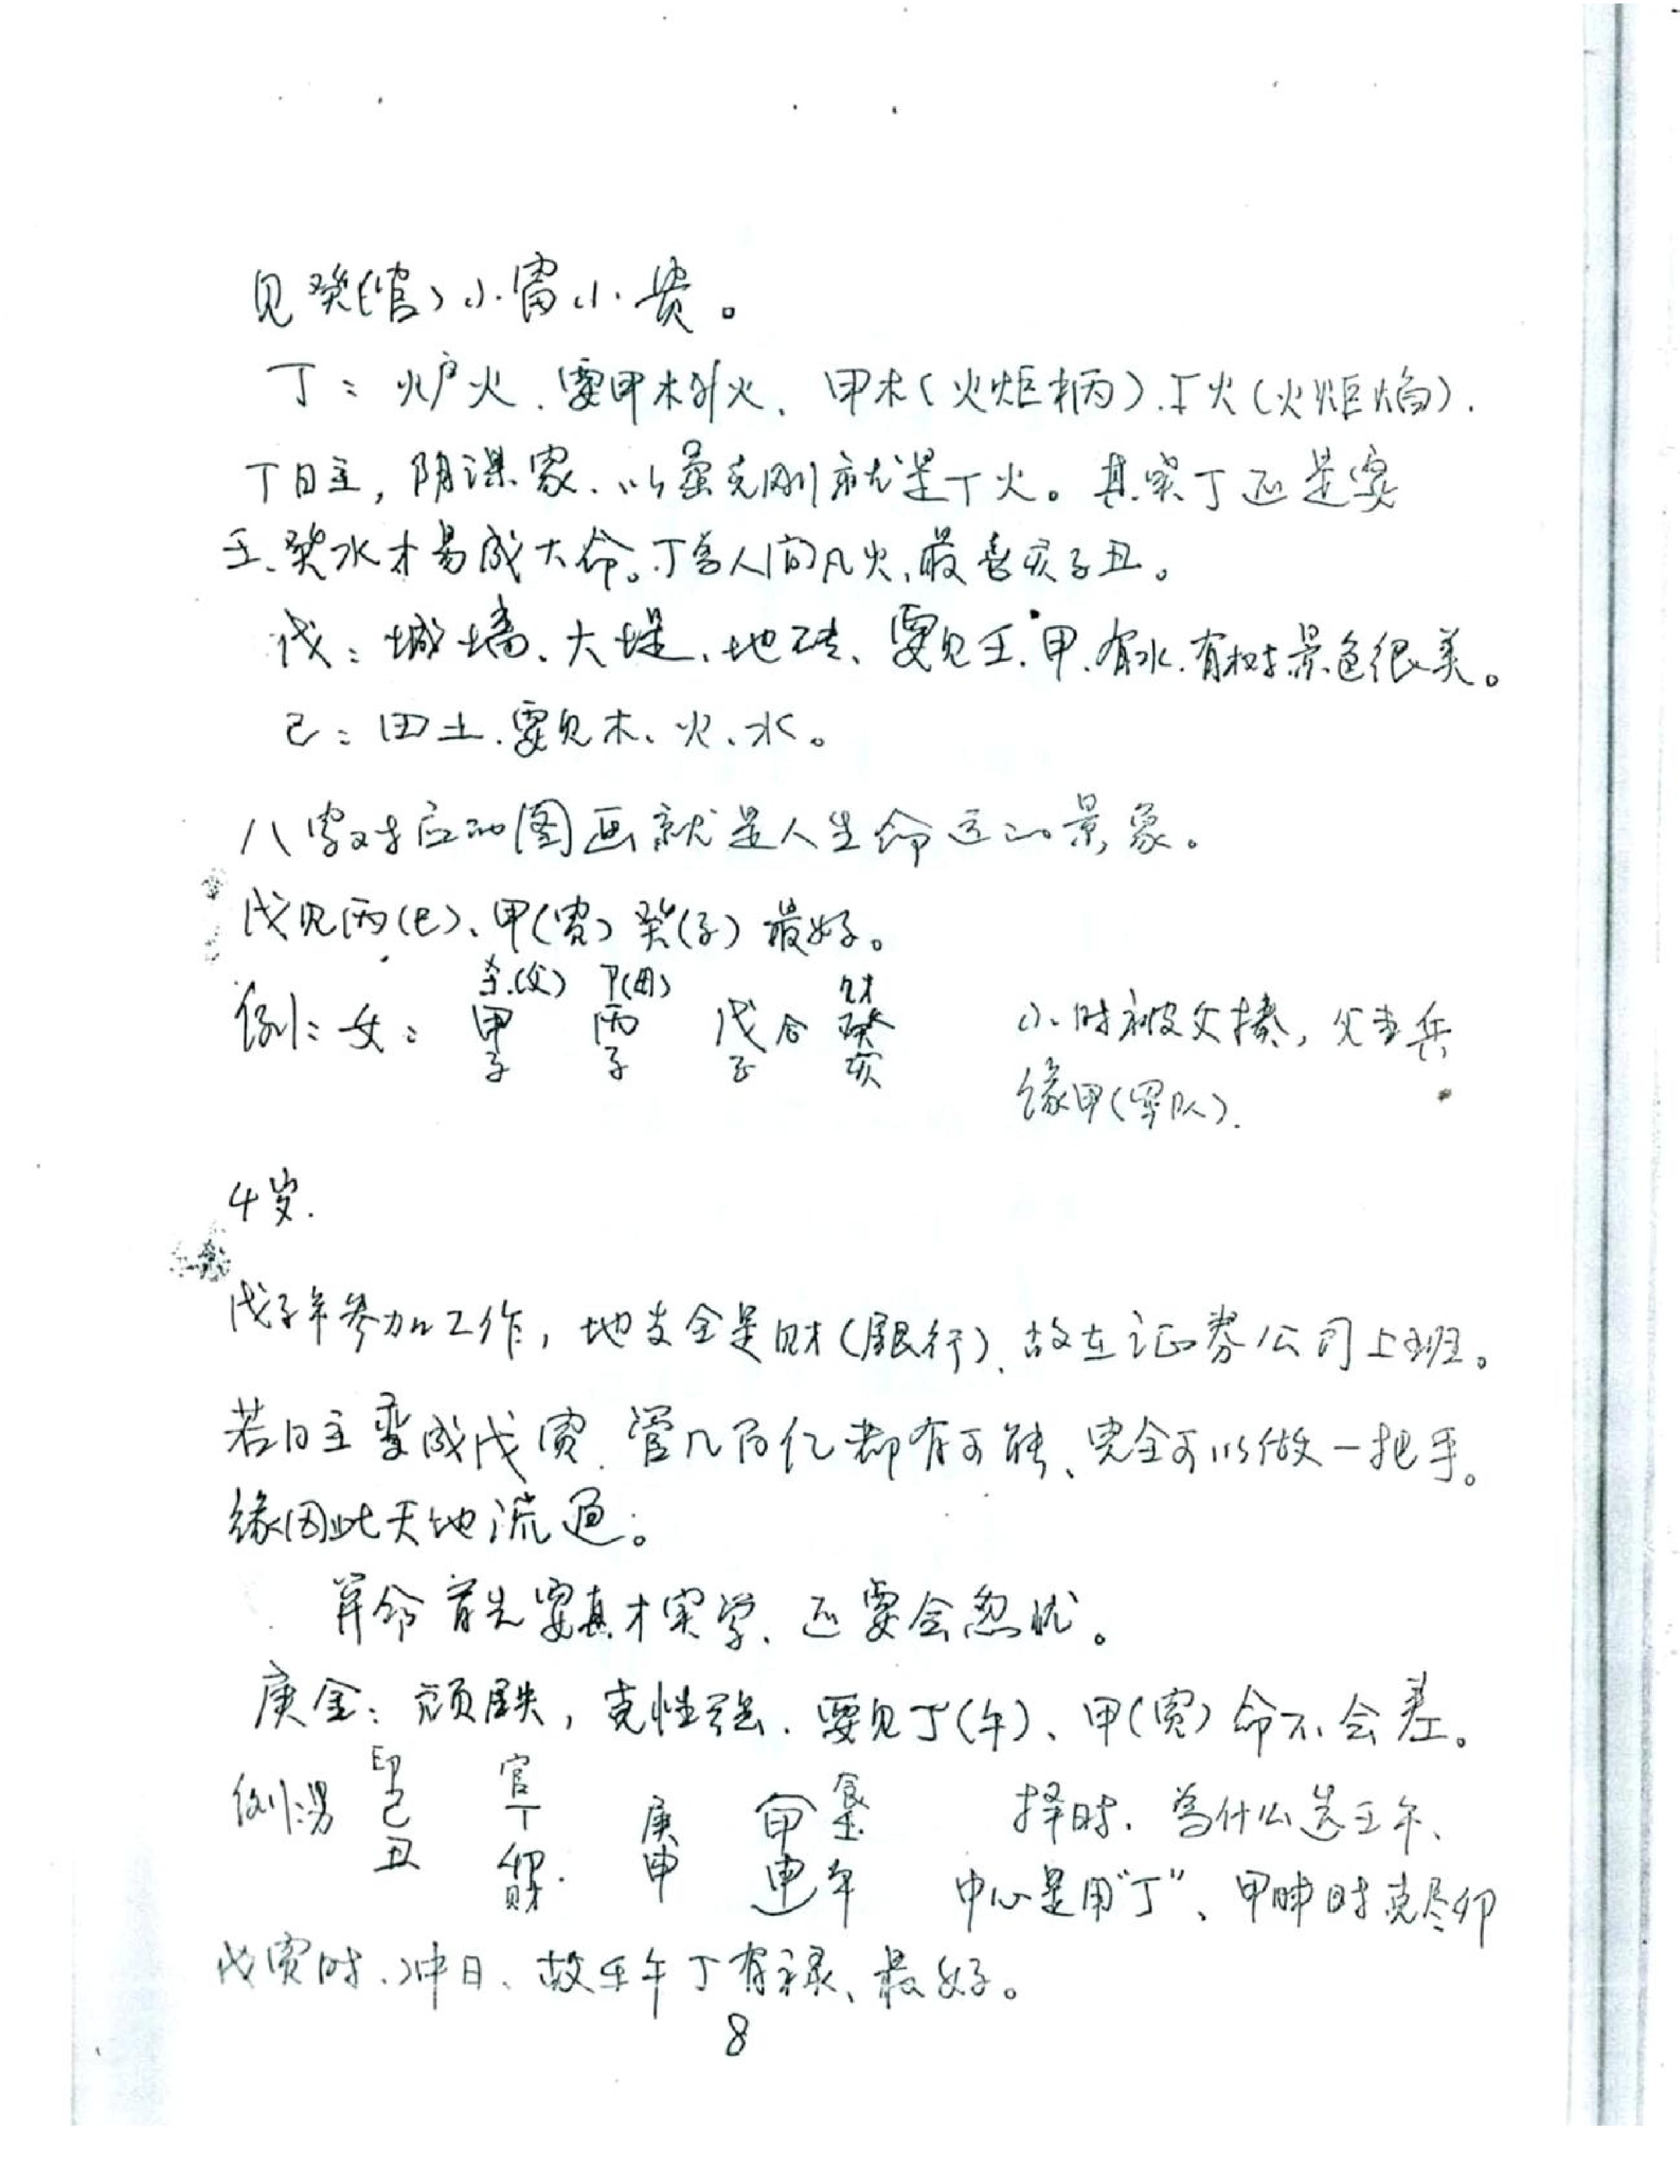 见癸(官)小富小贵。
丁:炉火.要甲木引火、甲木(火炬柄).丁火(火炬焰).
丁日主,阴谋家.以柔克刚就是丁火。其实丁还是要
壬.癸水才易成大命。丁为人间凡火,最喜亥子丑。
戊:城墙、大堤、地砖、要见壬.甲.有水.有树景色很美。
己:田土.要见木、火、水。
八字对应的图画就是人生命运的景象。
戊见丙(巳)、甲(寅)癸(子)最好。
杀(父) 卩(母) 财
例:女: 甲 丙 戊合癸 小时被父揍,父当兵
子 子 子 亥 缘甲(军队).
4岁.
戊子年参加工作,地支全是财(银行).故在证券公司上班。
若日主变成戊寅.管几百亿都有可能、完全可以做一把手。
缘因此天地流通。
算命首先要真才实学、还要会忽忧。
庚金:顽铁,克性强.要见丁(午)、甲(寅)命不会差。
印 官 食
例:男 己 丁 庚 甲 壬 择时.为什么选壬午、
丑 卯 申 申 午 中心是用"丁"、甲申时克尽卯
财.
戊寅时、冲日、故壬午丁有禄、最好。
8